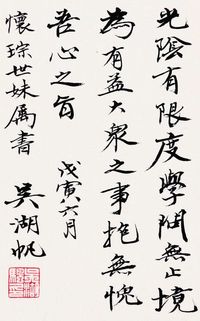 光陰有限度學問無止境
為有益大衆之事抱無愧
吾心之旨
戊寅六月
懷琮世妹属書
吳湖帆